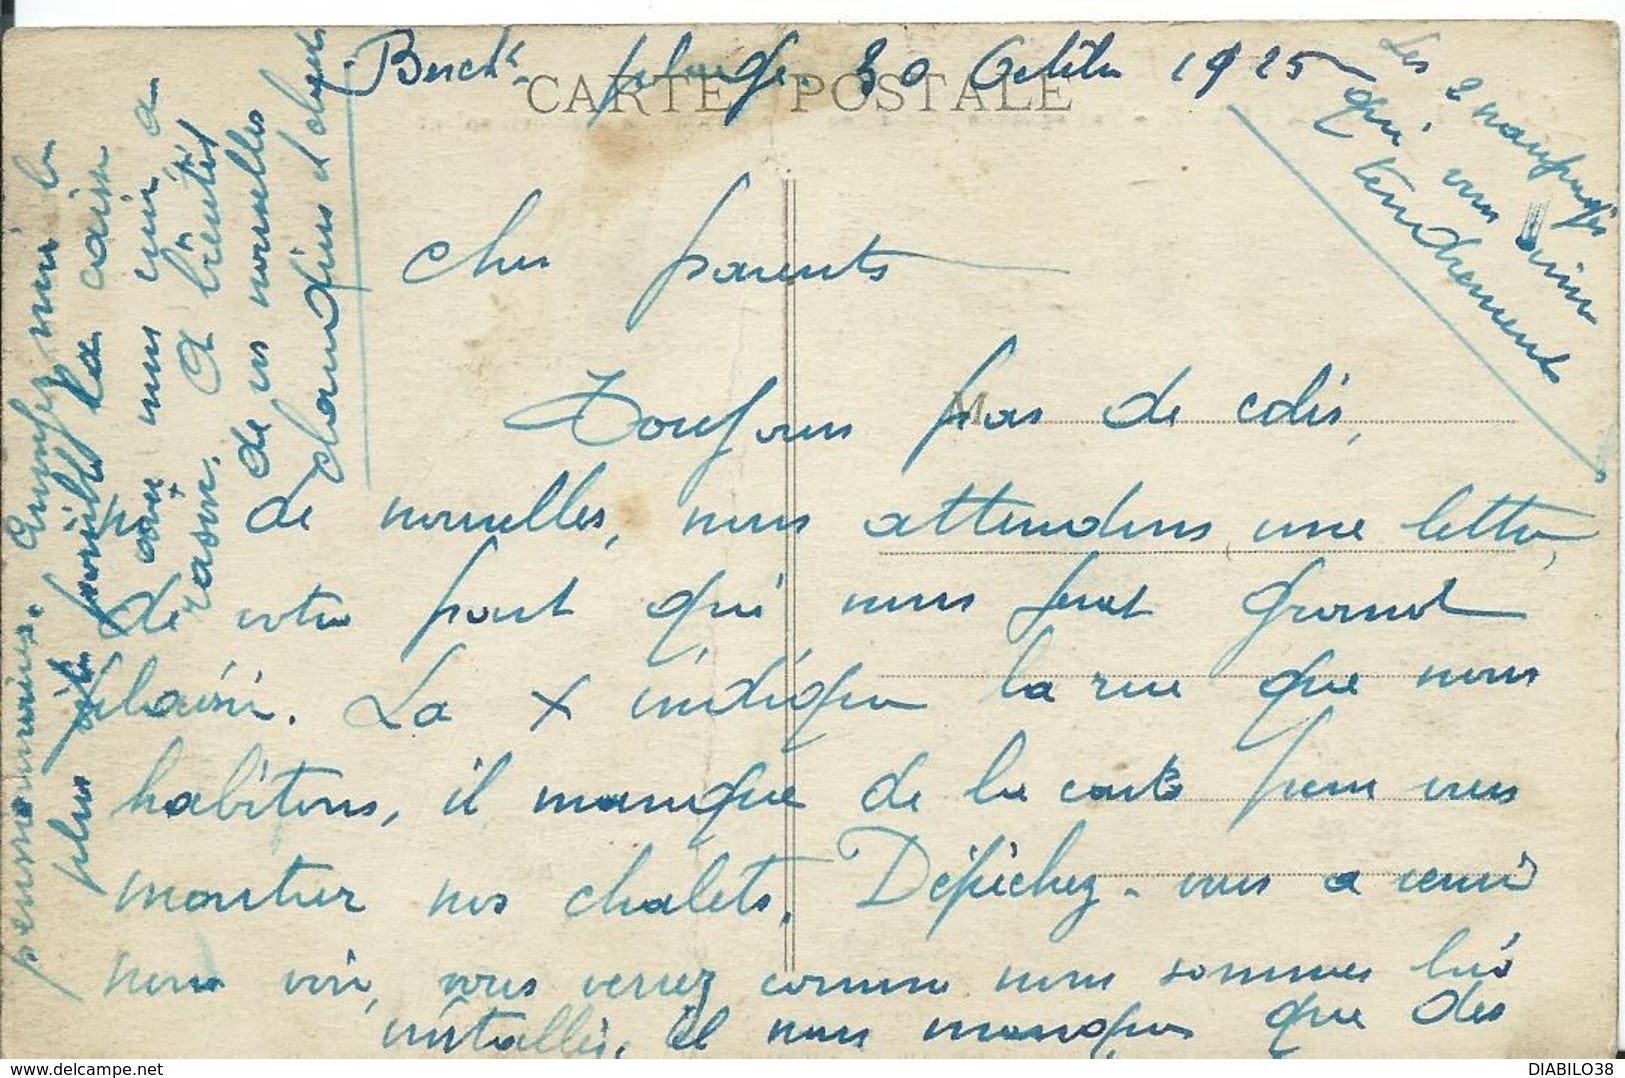 Berck plage. 30 Octobre 1925
CARTE POSTALE
Chers parents
Toujours pas de colis,
ni de nouvelles, nous attendons une lettre
de votre part qui nous ferat grand
plaisir. La X indique la rue que nous
habitons, il manque de la carte pour vous
montrer nos chalets. Dépéchez-vous a venir
nous voir, vous verrez comme nous sommes bien
installés, il nous manque que des
pensionnaires. Envoyez moi le
plus vite possible la caisse
avec mon cuir a
raser. A bientôt
de vos nouvelles
Les 2 naufragés
qui vous aime
tendrement
DIABILO38